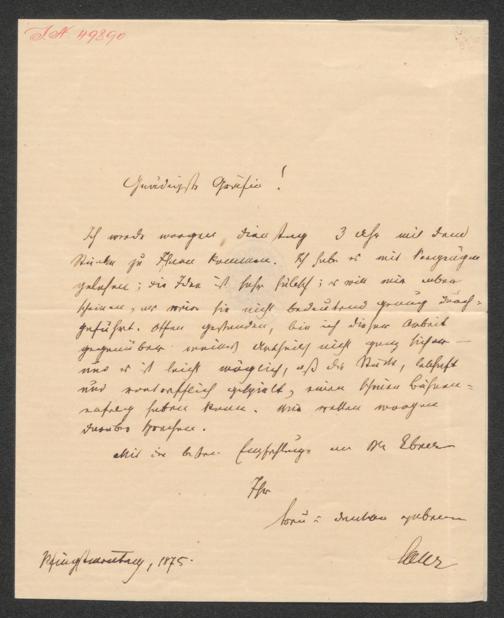 I.N 49890
Gnädigste Gräfin!
Ich werde morgen, Dienstag 3 Uhr mit dem
Stücke zu Ihnen kommen. Ich habe es mit Vergnügen
gelesen; die Idee ist sehr hübsch; es will mir aber
scheinen, als wäre sie nicht bedeutend genug durch=
geführt. Offen gestanden, bin ich dieser Arbeit
gegenüber meines Urtheils nicht ganz sicher —
und es ist leicht möglich, daß das Stück, lebhaft
und vortrefflich gespielt, einen schönen Bühnen=
erfolg haben kann. Wir wollen morgen
darüber sprechen.
Mit den besten Empfehlungen an Ebner
Ihr
treu = dankbar ergebener
Pfingstmontag, 1875.